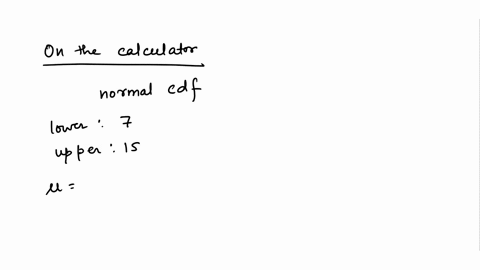 On the calculator
normal cdf
lower : 7
upper : 15
μ =